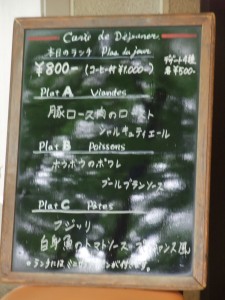 Carte de Déjeuner
本日のランチ Plas du jour
¥800- (コーヒー付¥1,000-)
デザート4種
各¥500-
Plat A Viandes
豚ロース肉のロースト
シャルキュティエール
Plat B Poissons
ホウボウのポワレ
ブールブランソース
Plat C Pâtes
フジッリ
白身魚のトマトソース プロヴァンス風